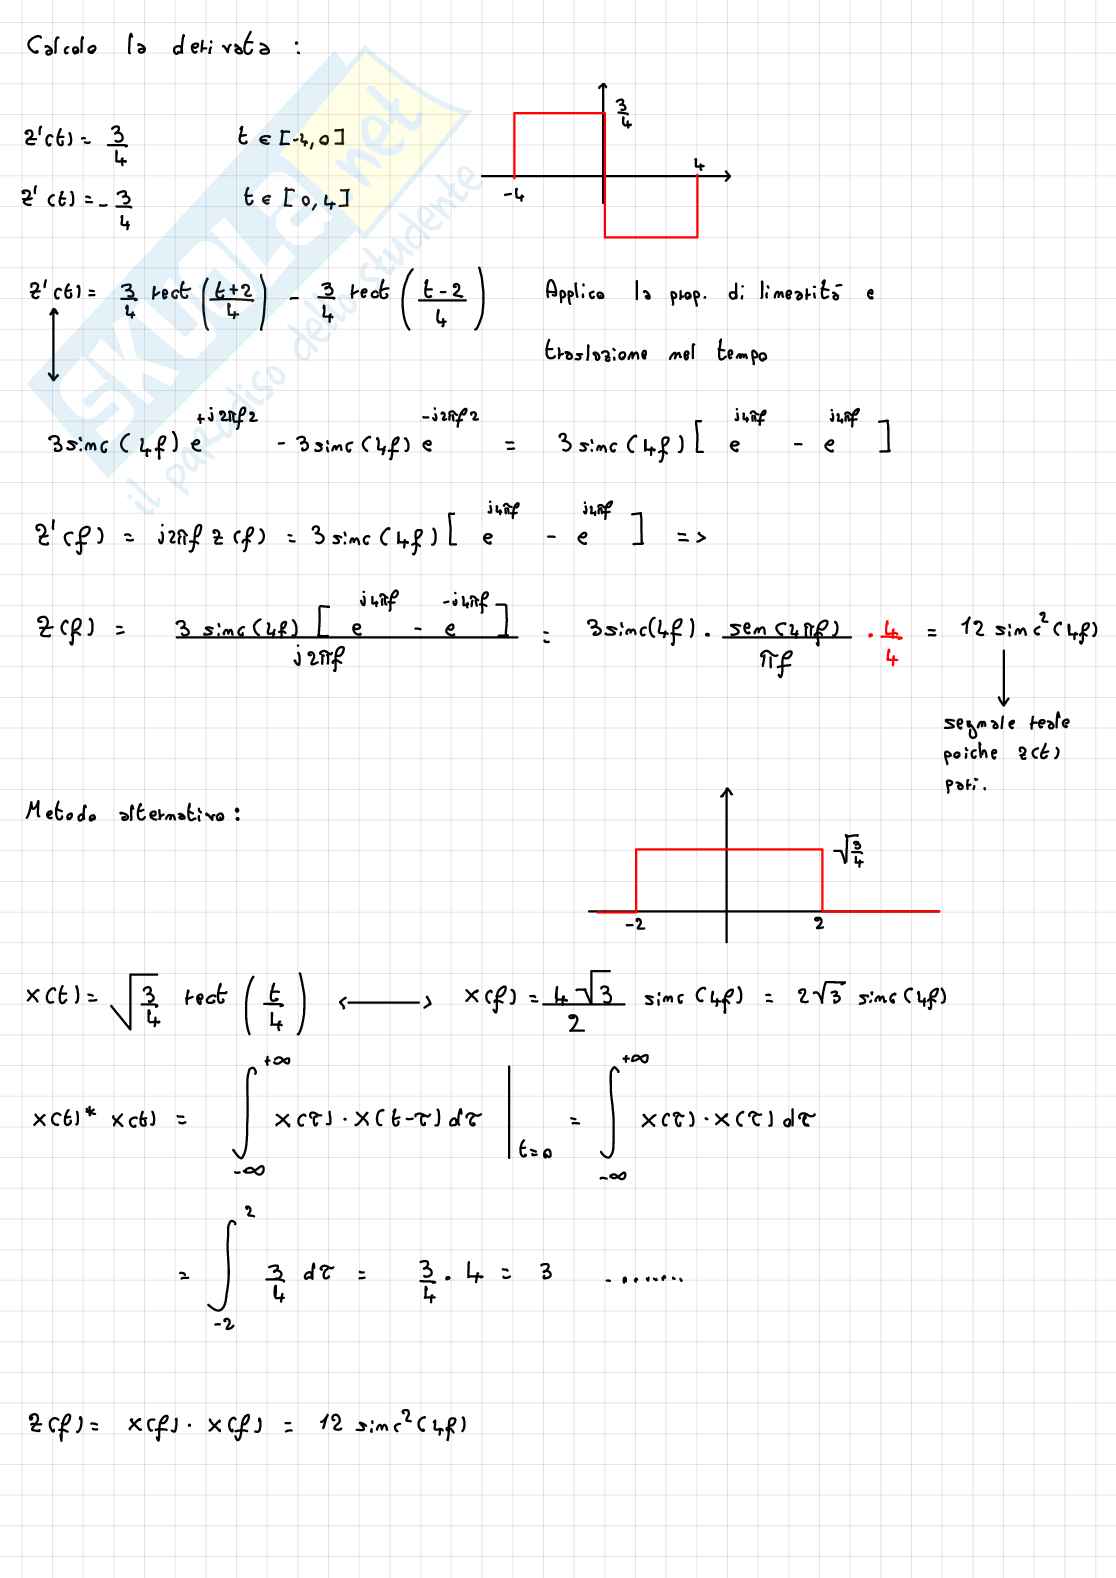 Calcolo la derivata :
3/4
z'(t) = 3/4 t ∈ [-4,0]
4
-4
z'(t) = - 3/4 t ∈ [0,4]
z'(t) = 3/4 rect ( (t+2)/4 ) - 3/4 rect ( (t-2)/4 ) Applico la prop. di linearità e
traslazione nel tempo
3 sinc (4f) e^{+j2πf2} - 3 sinc (4f) e^{-j2πf2} = 3 sinc (4f) [ e^{j4πf} - e^{j4πf} ]
z'(f) = j2πf z(f) = 3 sinc (4f) [ e^{j4πf} - e^{j4πf} ] =>
z(f) = 3 sinc (4f) [ e^{j4πf} - e^{-j4πf} ] / j2πf = 3sinc(4f) · sen(4πf) / πf · 4/4 = 12 sinc²(4f)
segnale reale
poiche z(t)
pari.
Metodo alternativo :
√3/4
-2 2
x(t) = √(3/4) rect ( t/4 ) <——> x(f) = 4√3/2 sinc (4f) = 2√3 sinc(4f)
x(t) * x(t) = ∫_{-∞}^{+∞} x(τ) · x(t-τ) dτ |_{t=0} = ∫_{-∞}^{+∞} x(τ) · x(τ) dτ
= ∫_{-2}^{2} 3/4 dτ = 3/4 · 4 = 3 ........
z(f) = x(f) · x(f) = 12 sinc²(4f)
SKUOLA.net
il paradiso dello studente